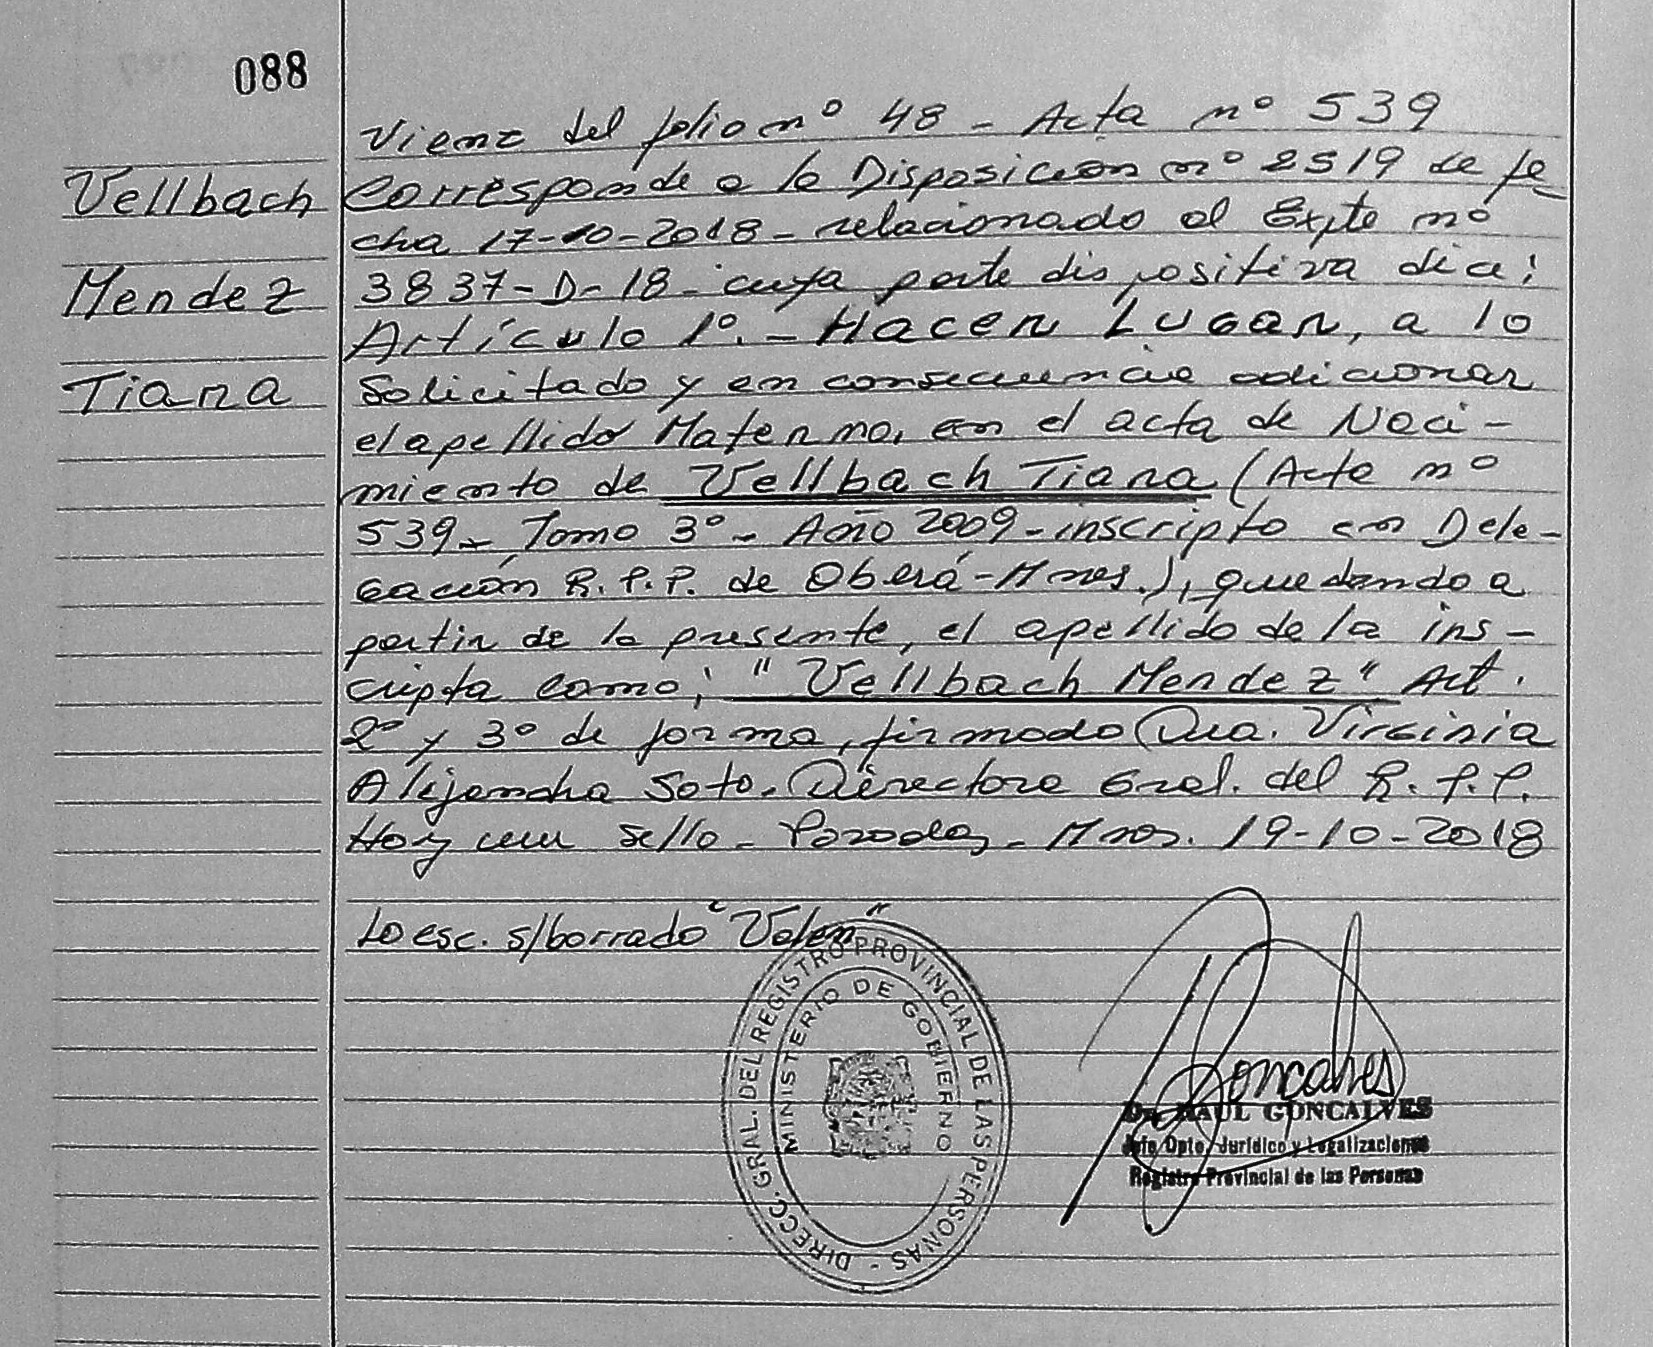 088
Vellbach
Mendez
Tiana
Viene del folio nº 48 - Acta nº 539
Corresponde a la Disposición nº 2519 de fe-
cha 17-10-2018 - relacionado al Expte nº
3837-D-18 - cuya parte dispositiva dice:
Artículo 1º. - Hacer Lugar, a lo
solicitado y en consecuencia adicionar
el apellido Materno, en el acta de Naci-
miento de Vellbach Tiana (Acta nº
539 - Tomo 3º - Año 2009 - inscripto en Dele-
gación R.P.P. de Oberá - Mnes.), quedando a
partir de la presente, el apellido de la ins-
cripta como; "Vellbach Mendez" Art.
2º y 3º de forma, firmado Dra. Virginia
Alejandra Soto - Directora Gral. del R.P.P.
Hay un sello - Posadas - Mnes. 19-10-2018
Lo esc. s/borrado "Valen"
DIRECC. GRAL. DEL REGISTRO PROVINCIAL DE LAS PERSONAS -
MINISTERIO DE GOBIERNO
Goncalves
Dr. RAUL GONCALVES
Jefe Dpto. Jurídico y Legalizaciones
Registro Provincial de las Personas